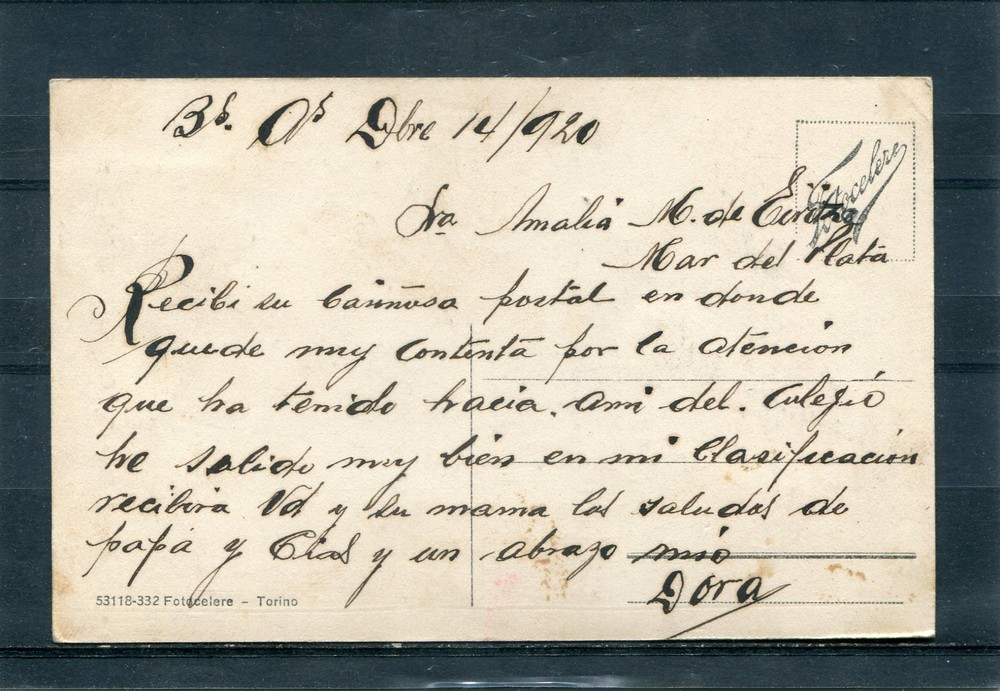 Bs. As Dbre 14/920
Fotocelere
Sra Amalia M. de
Mar del Plata
Recibi su Cariñosa postal en donde
quede muy Contenta por la atención
que ha tenido hacia. ami del. Colegio
he salido muy bien en mi Clasificación
recibira Vd y su mama los saludos de
papa y tias y un abrazo mio
Dora
53118-332 Fotocelere - Torino